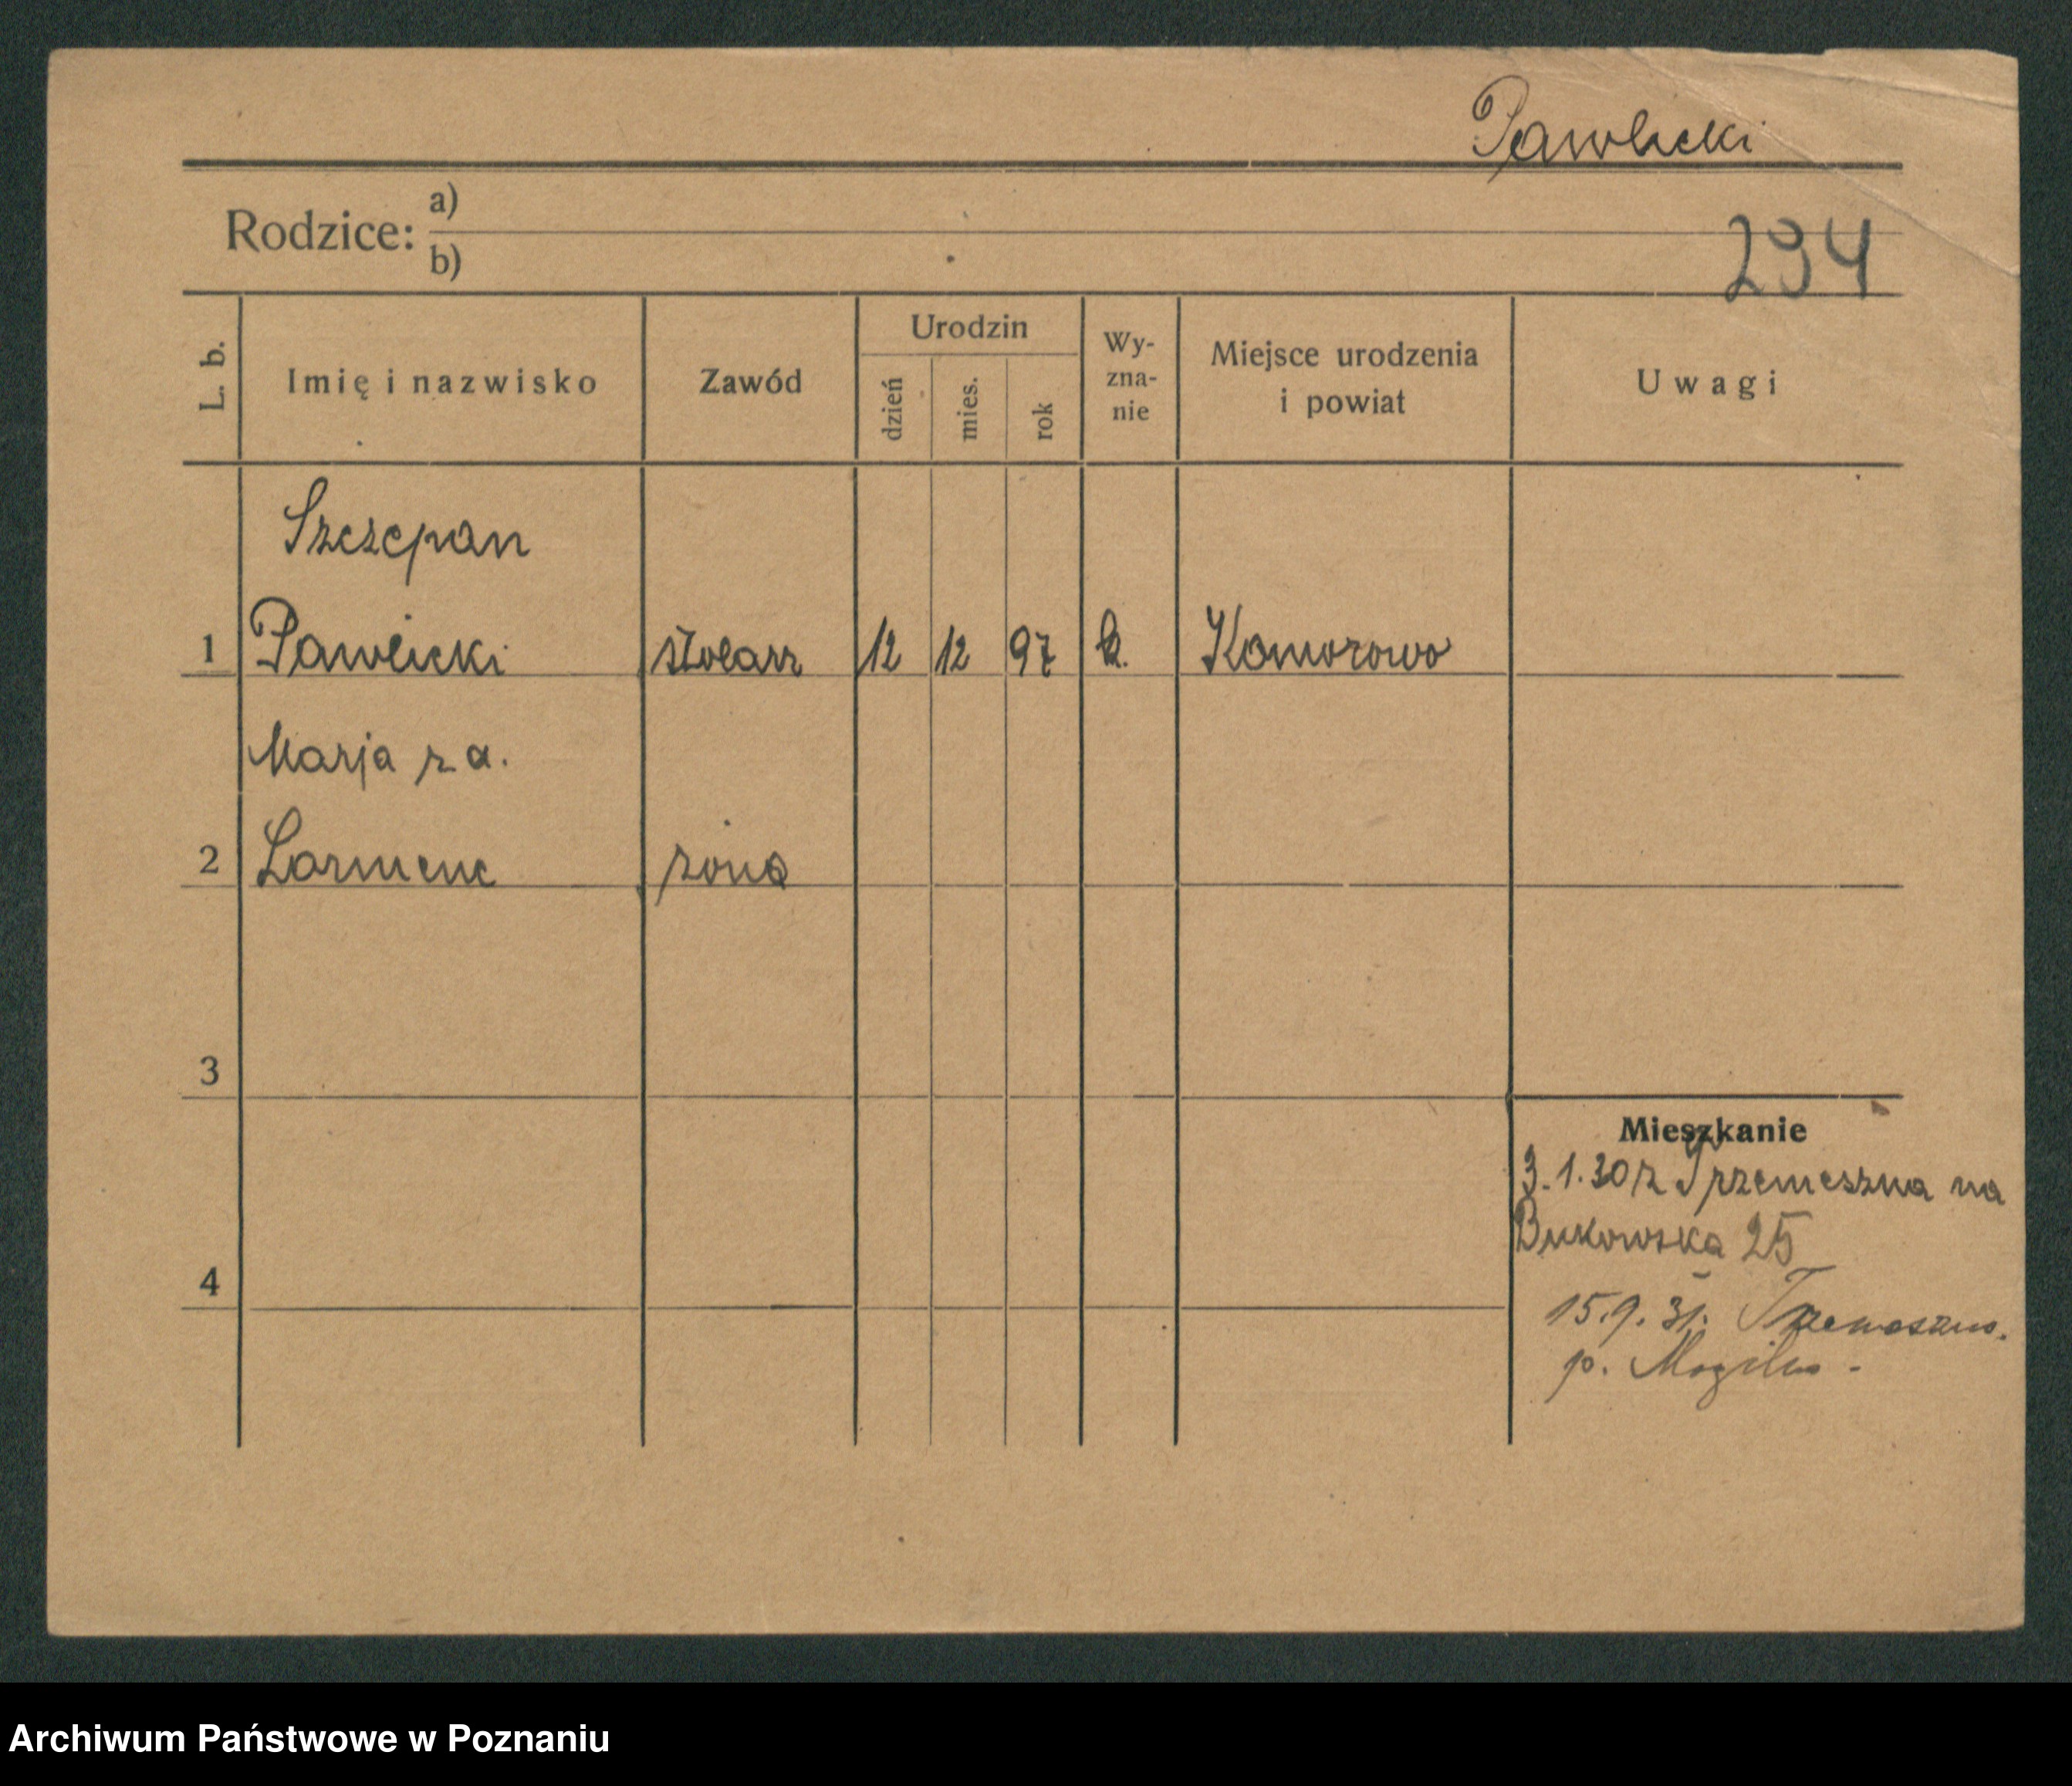 Pawlicki
Rodzice: a)
b)
294
L. b. Imię i nazwisko Zawód Urodzin dzień mies. rok Wy-zna-nie Miejsce urodzenia i powiat Uwagi
Szczepan
1 Pawlicki stolarz 12 12 97 k. Komorowo
Marja z d.
2 żona
3
Mieszkanie
3.1.30 z Trzemeszna na
Bukowska 25
4
15.9.31. Trzemeszno.
p. Mogilno -
Archiwum Państwowe w Poznaniu